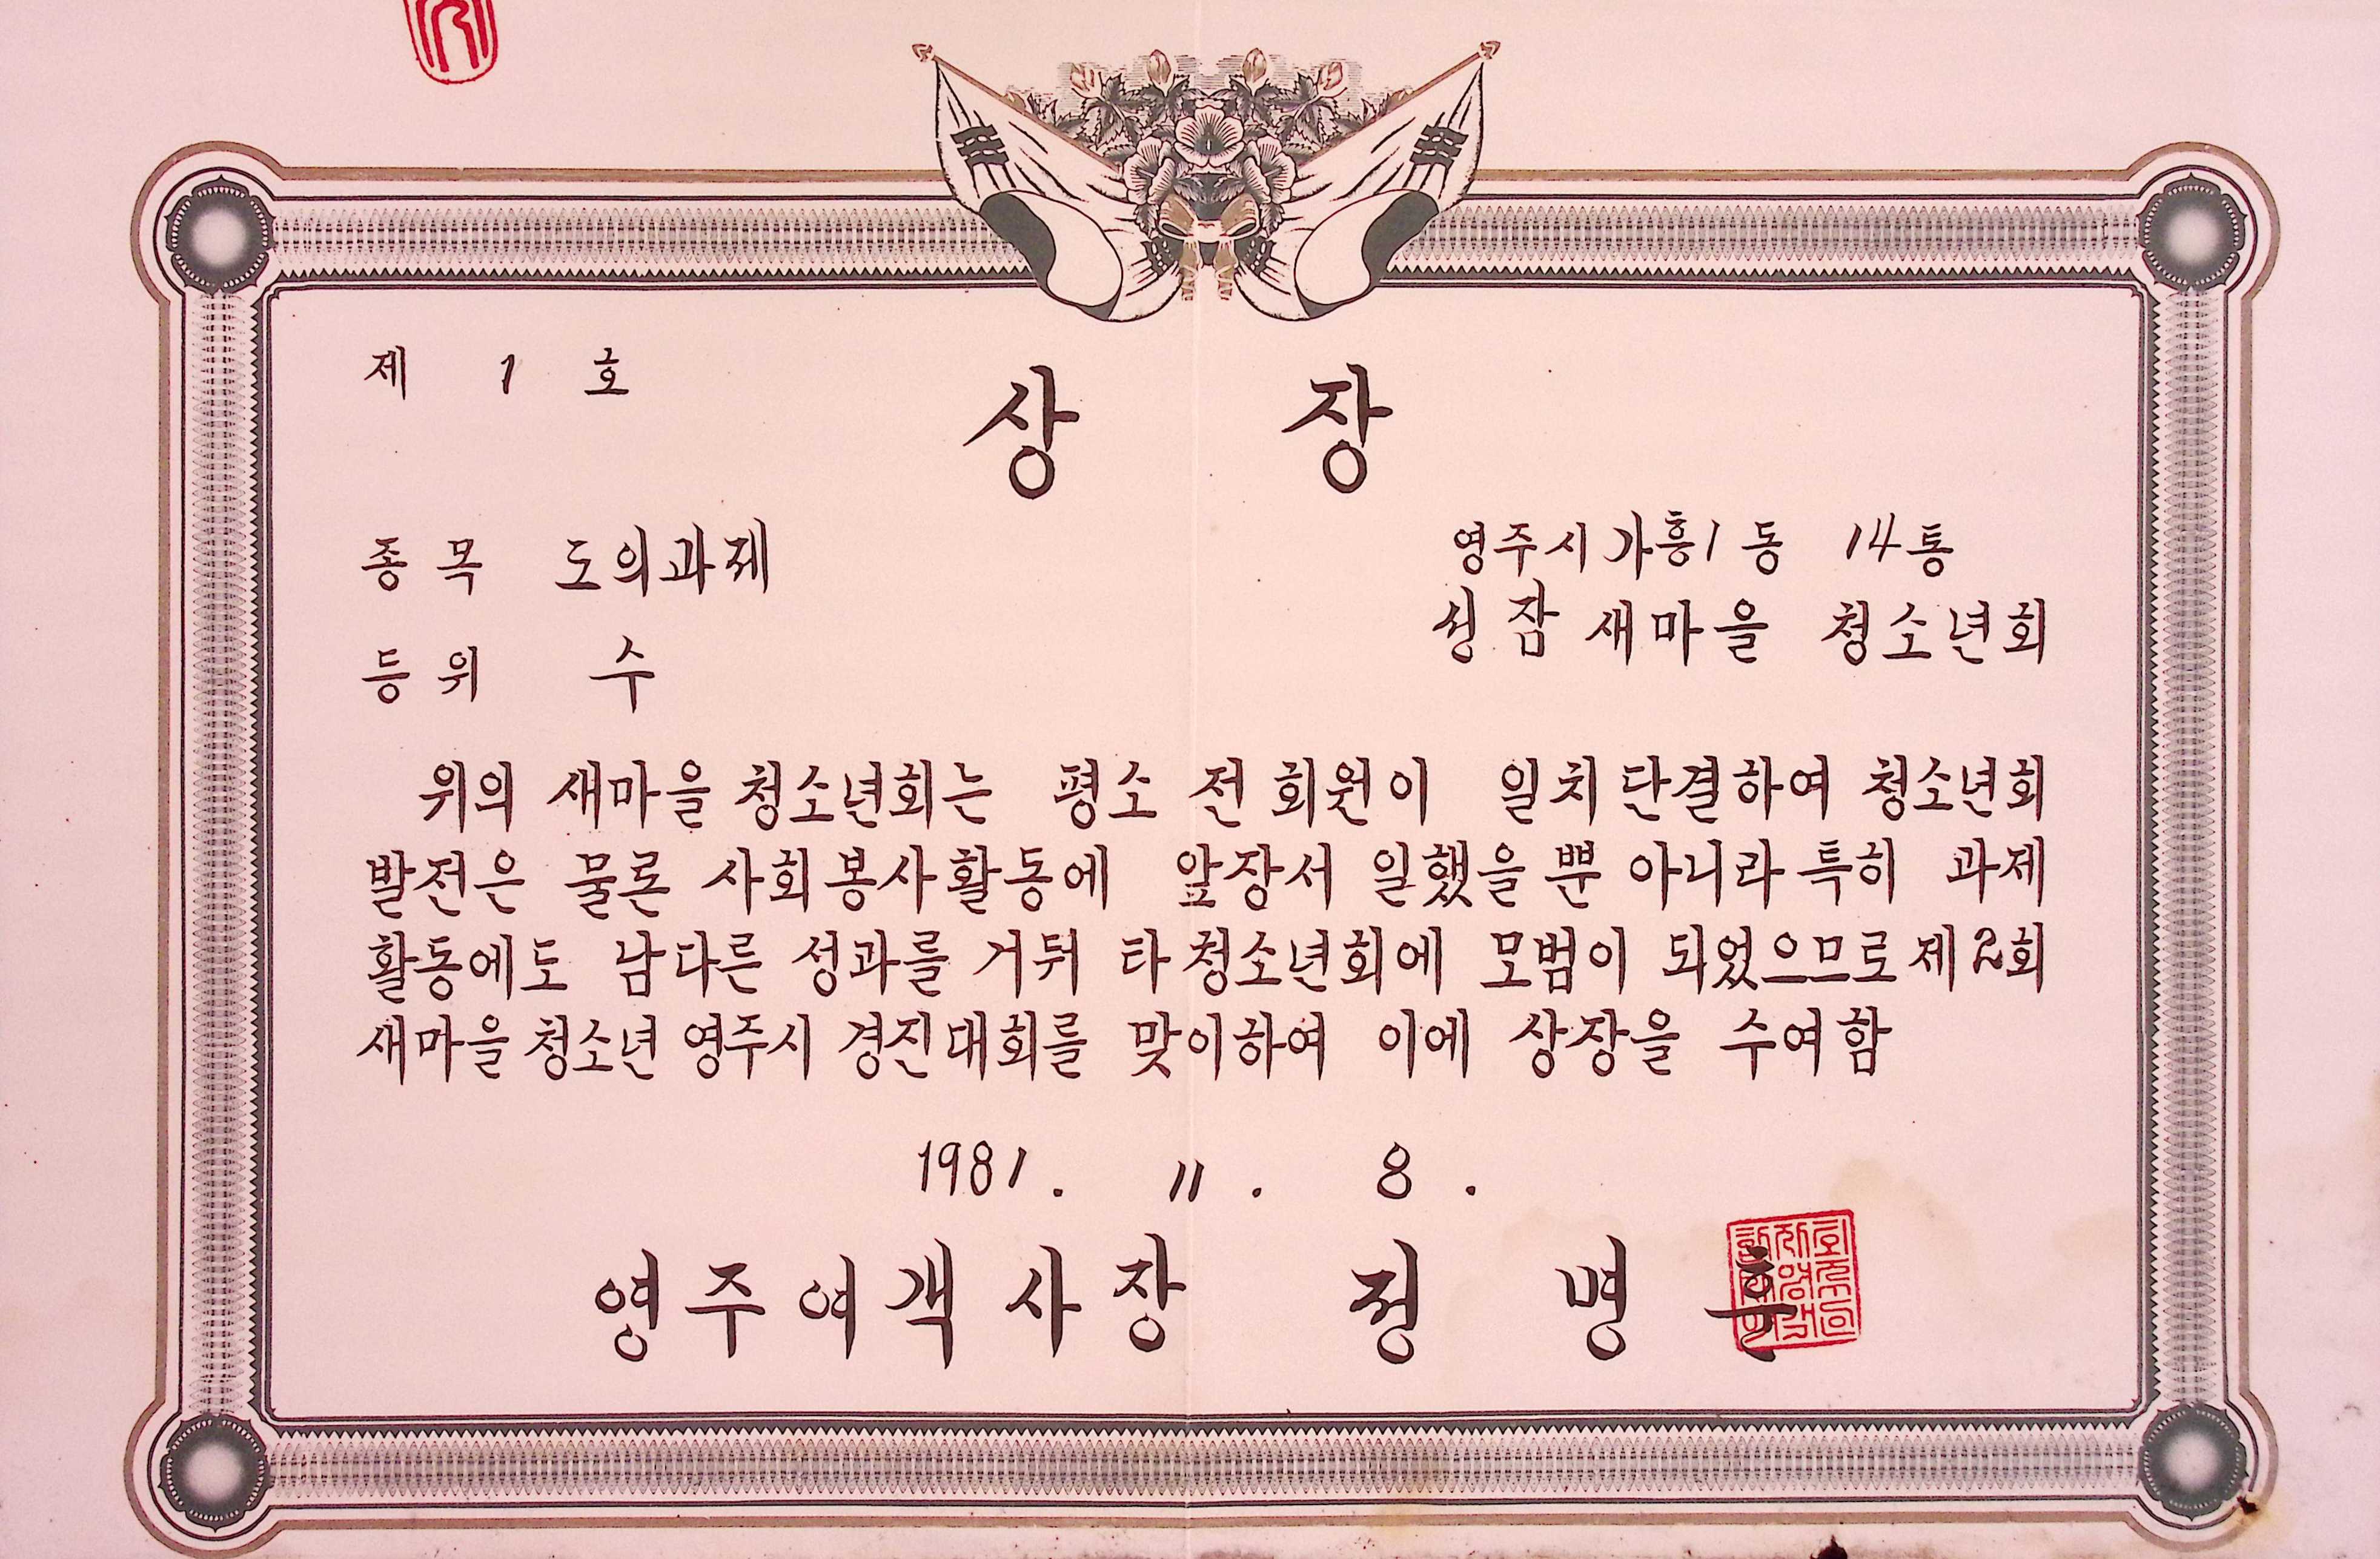 제 1 호
상 장
종목 도의과제
영주시 가흥1동 14통
성잠 새마을 청소년회
등위 수
위의 새마을 청소년회는 평소 전 회원이 일치단결하여 청소년회
발전은 물론 사회봉사활동에 앞장서 일했을 뿐 아니라 특히 과제
활동에도 남다른 성과를 거둬 타 청소년회에 모범이 되었으므로 제2회
새마을 청소년 영주시 경진대회를 맞이하여 이에 상장을 수여함
1981. 11. 8.
영주여객사장 정 명